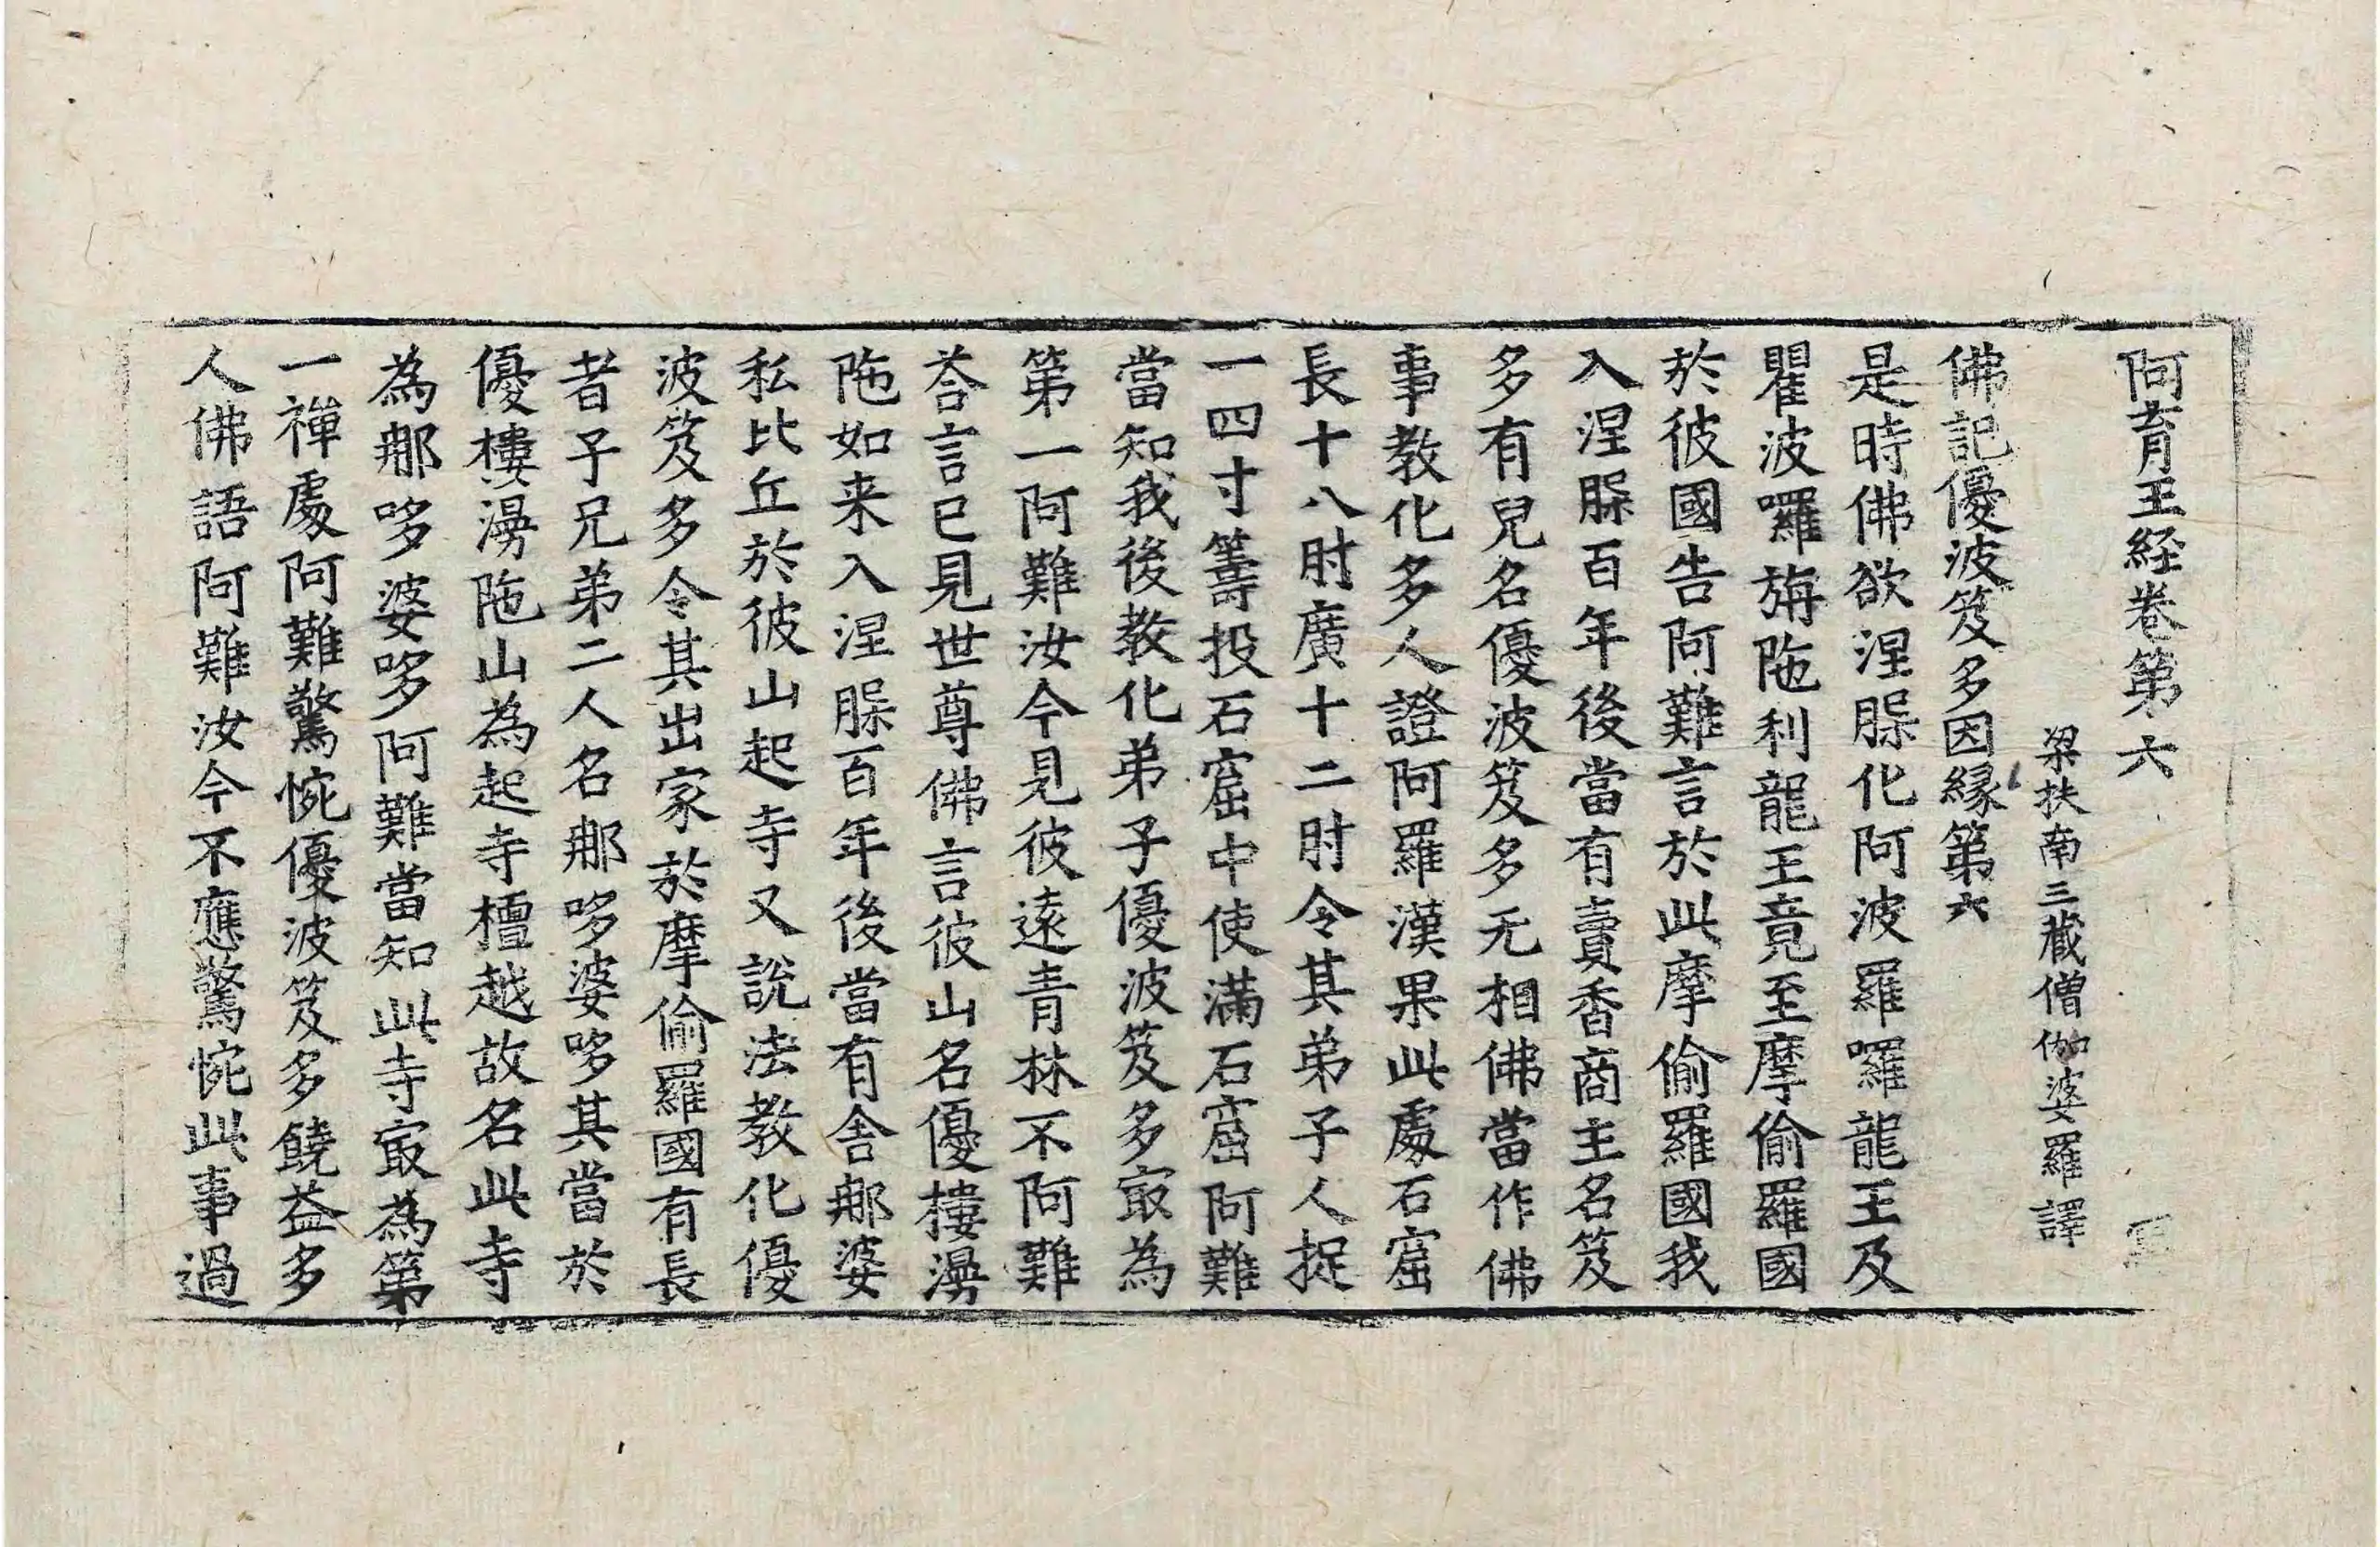 阿育王経卷第六
梁扶南三藏僧伽婆羅譯
佛記優波笈多因縁第六
是時佛欲涅脲化阿波羅囉龍王及
瞿波囉旃陁利龍王竟至摩偷羅國
於彼國告阿難言於此摩偷羅國我
入涅脲百年後當有賣香商主名笈
多有兒名優波笈多无相佛當作佛
事教化多人證阿羅漢果此處石窟
長十八肘廣十二肘令其弟子人捉
一四寸籌投石窟中使滿石窟阿難
當知我後教化弟子優波笈多㝡為
第一阿難汝今見彼遠青林不阿難
荅言已見世尊佛言彼山名優樓漫
陁如来入涅脲百年後當有舎那婆
私比丘於彼山起寺又說法教化優
波笈多令其出家於摩偷羅國有長
者子兄弟二人名那哆婆哆其當於
優樓漫陁山為起寺檀越故名此寺
為那哆婆哆阿難當知此寺㝡為第
一禪處阿難驚惋優波笈多饒益多
人佛語阿難汝今不應驚惋此事過